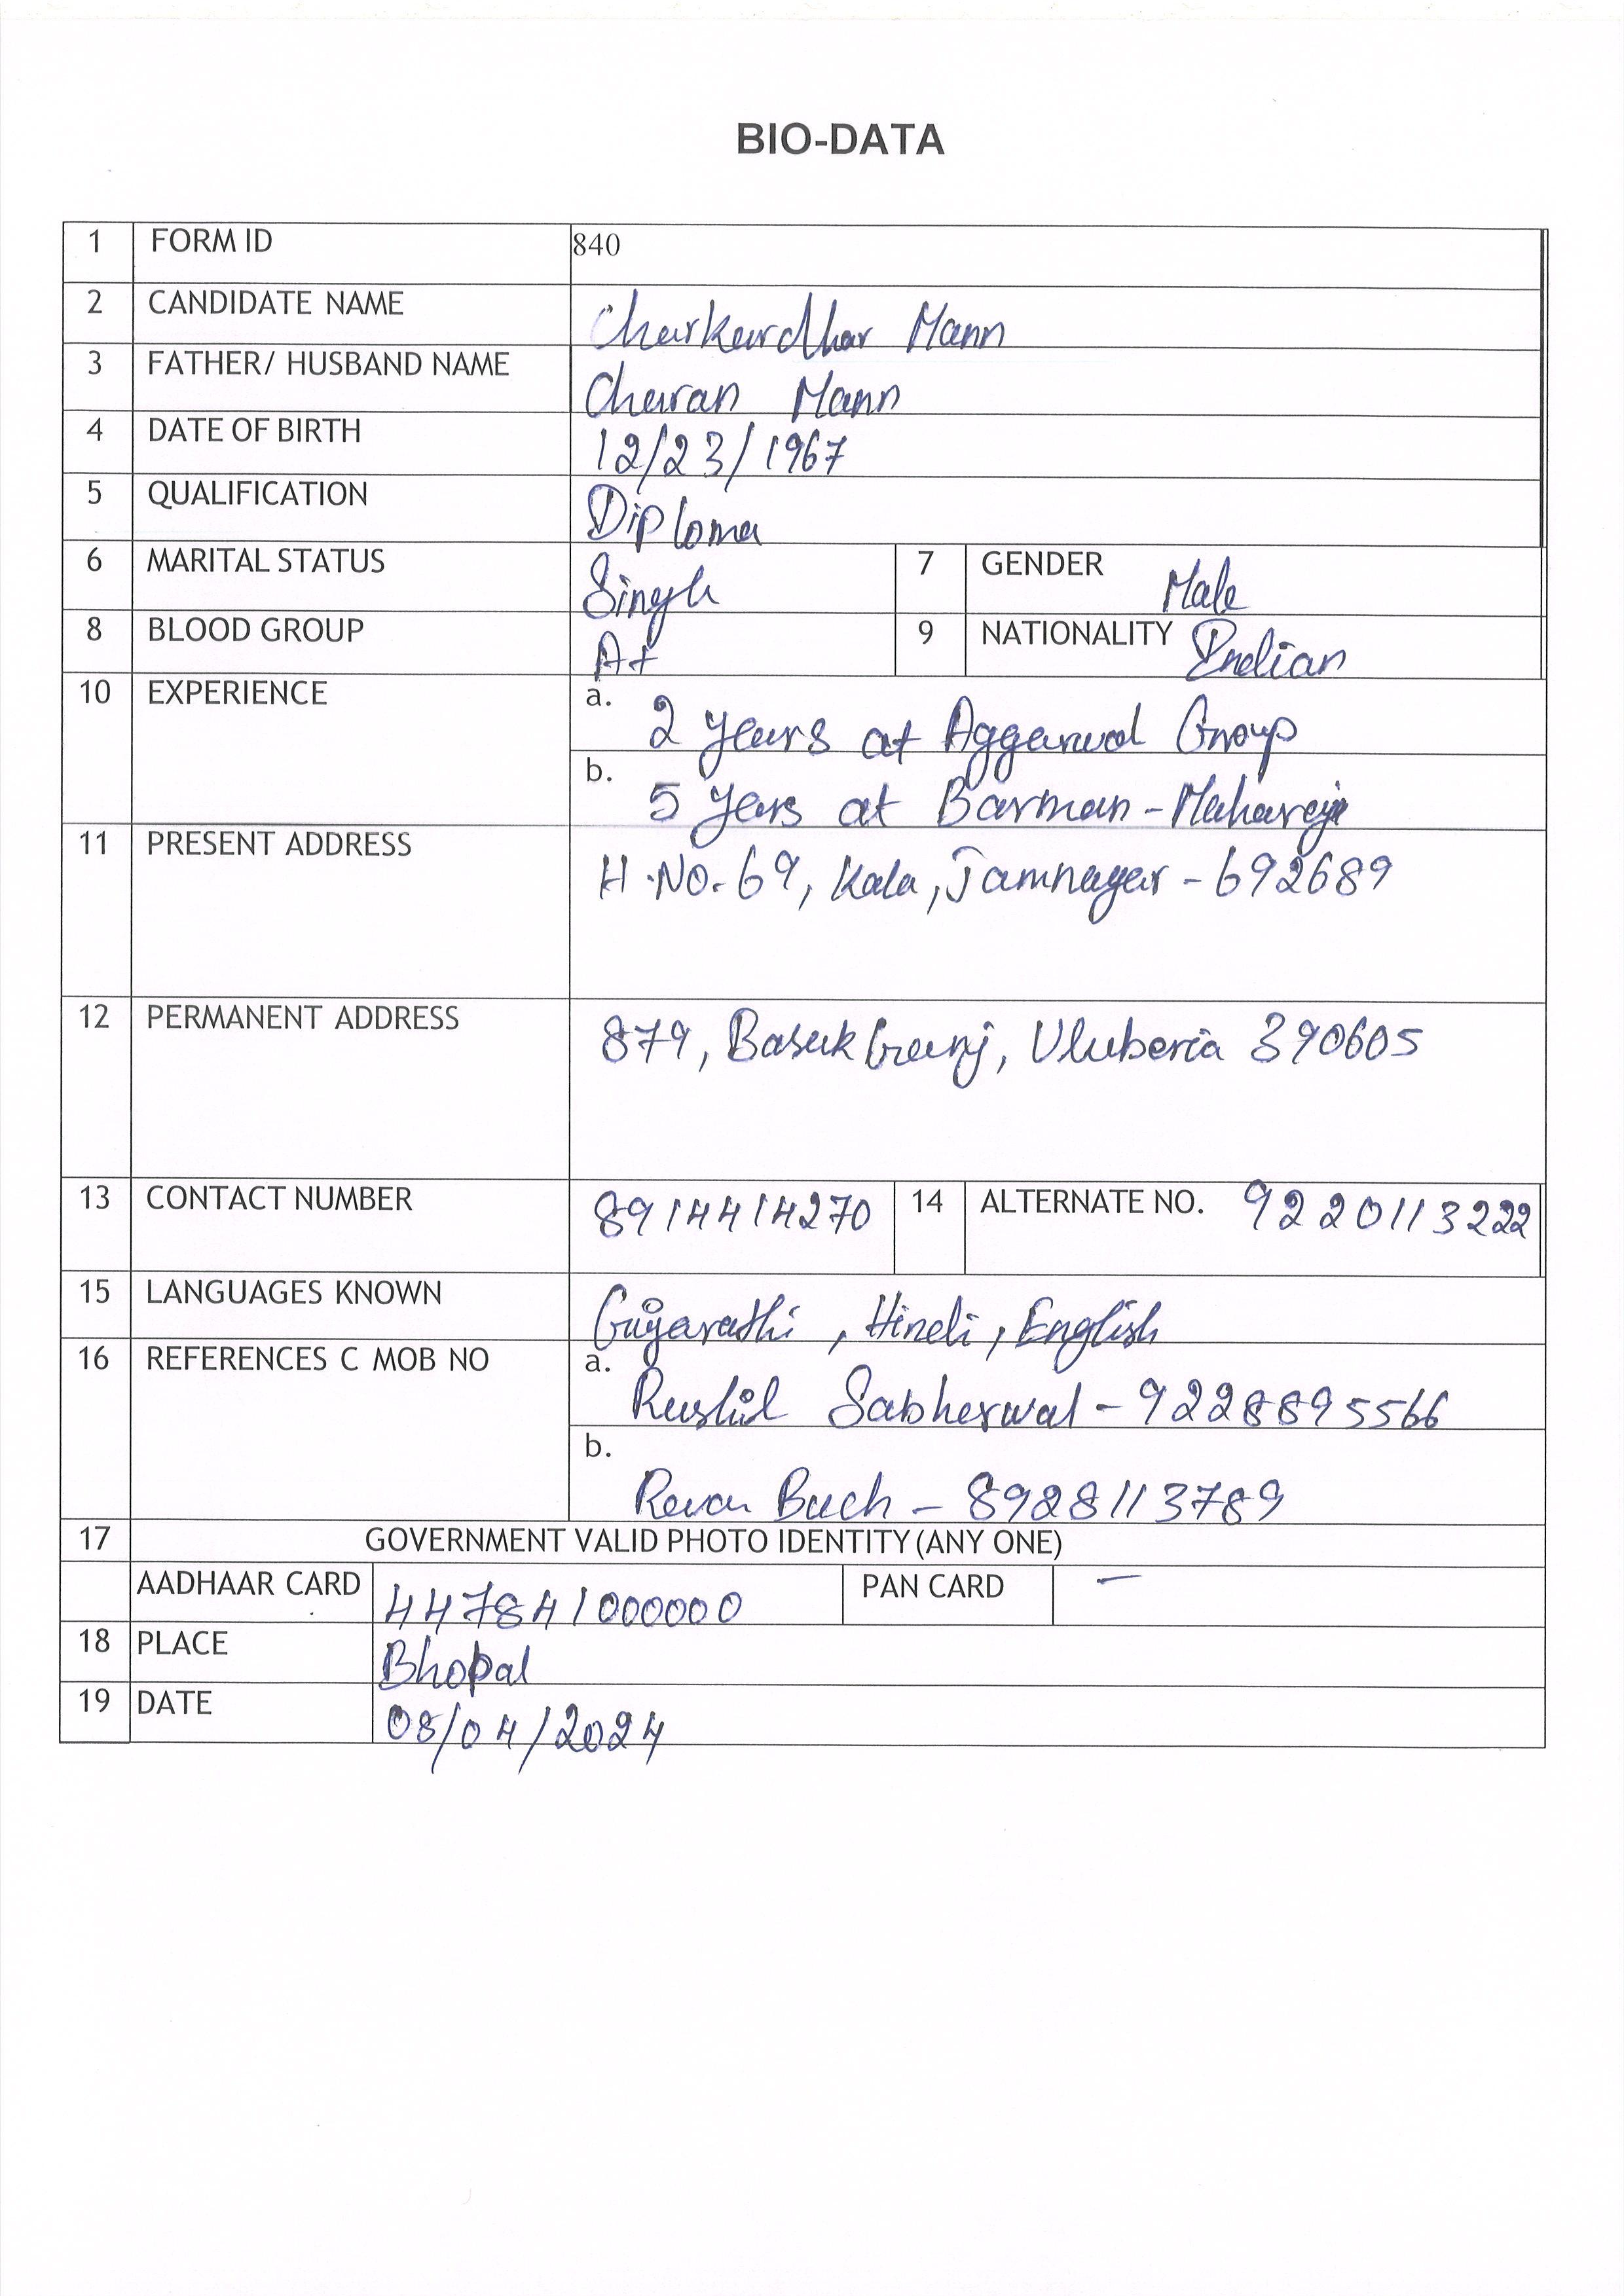 BIO-DATA
1 FORM ID 840
2 CANDIDATE NAME Charkardhar Mann
3 FATHER/ HUSBAND NAME Charan Mann
4 DATE OF BIRTH 12/23/1967
5 QUALIFICATION Diploma
6 MARITAL STATUS Single 7 GENDER Male
8 BLOOD GROUP A+ 9 NATIONALITY Indian
10 EXPERIENCE a. 2 years at Aggarwal Group
b. 5 years at Barman-Maharaj
11 PRESENT ADDRESS H.NO.69, Kala, Jamnagar - 692689
12 PERMANENT ADDRESS 879, Basak Gunj, Uluberia 390605
13 CONTACT NUMBER 8914414270 14 ALTERNATE NO. 9220113222
15 LANGUAGES KNOWN Gujarathi, Hindi, English
16 REFERENCES C MOB NO a. Rushil Sabherwal - 9228895566
b. Buch - 8928113789
17 GOVERNMENT VALID PHOTO IDENTITY (ANY ONE)
AADHAAR CARD 447841000000 PAN CARD -
18 PLACE Bhopal
19 DATE 08/04/2024